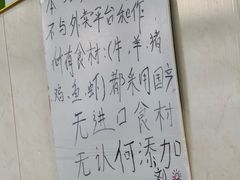 本
不与外卖平台和作,
所有食材:(牛,羊,猪
,鸡,鱼,虾)都采用国产,
无进口食材
无认何添加